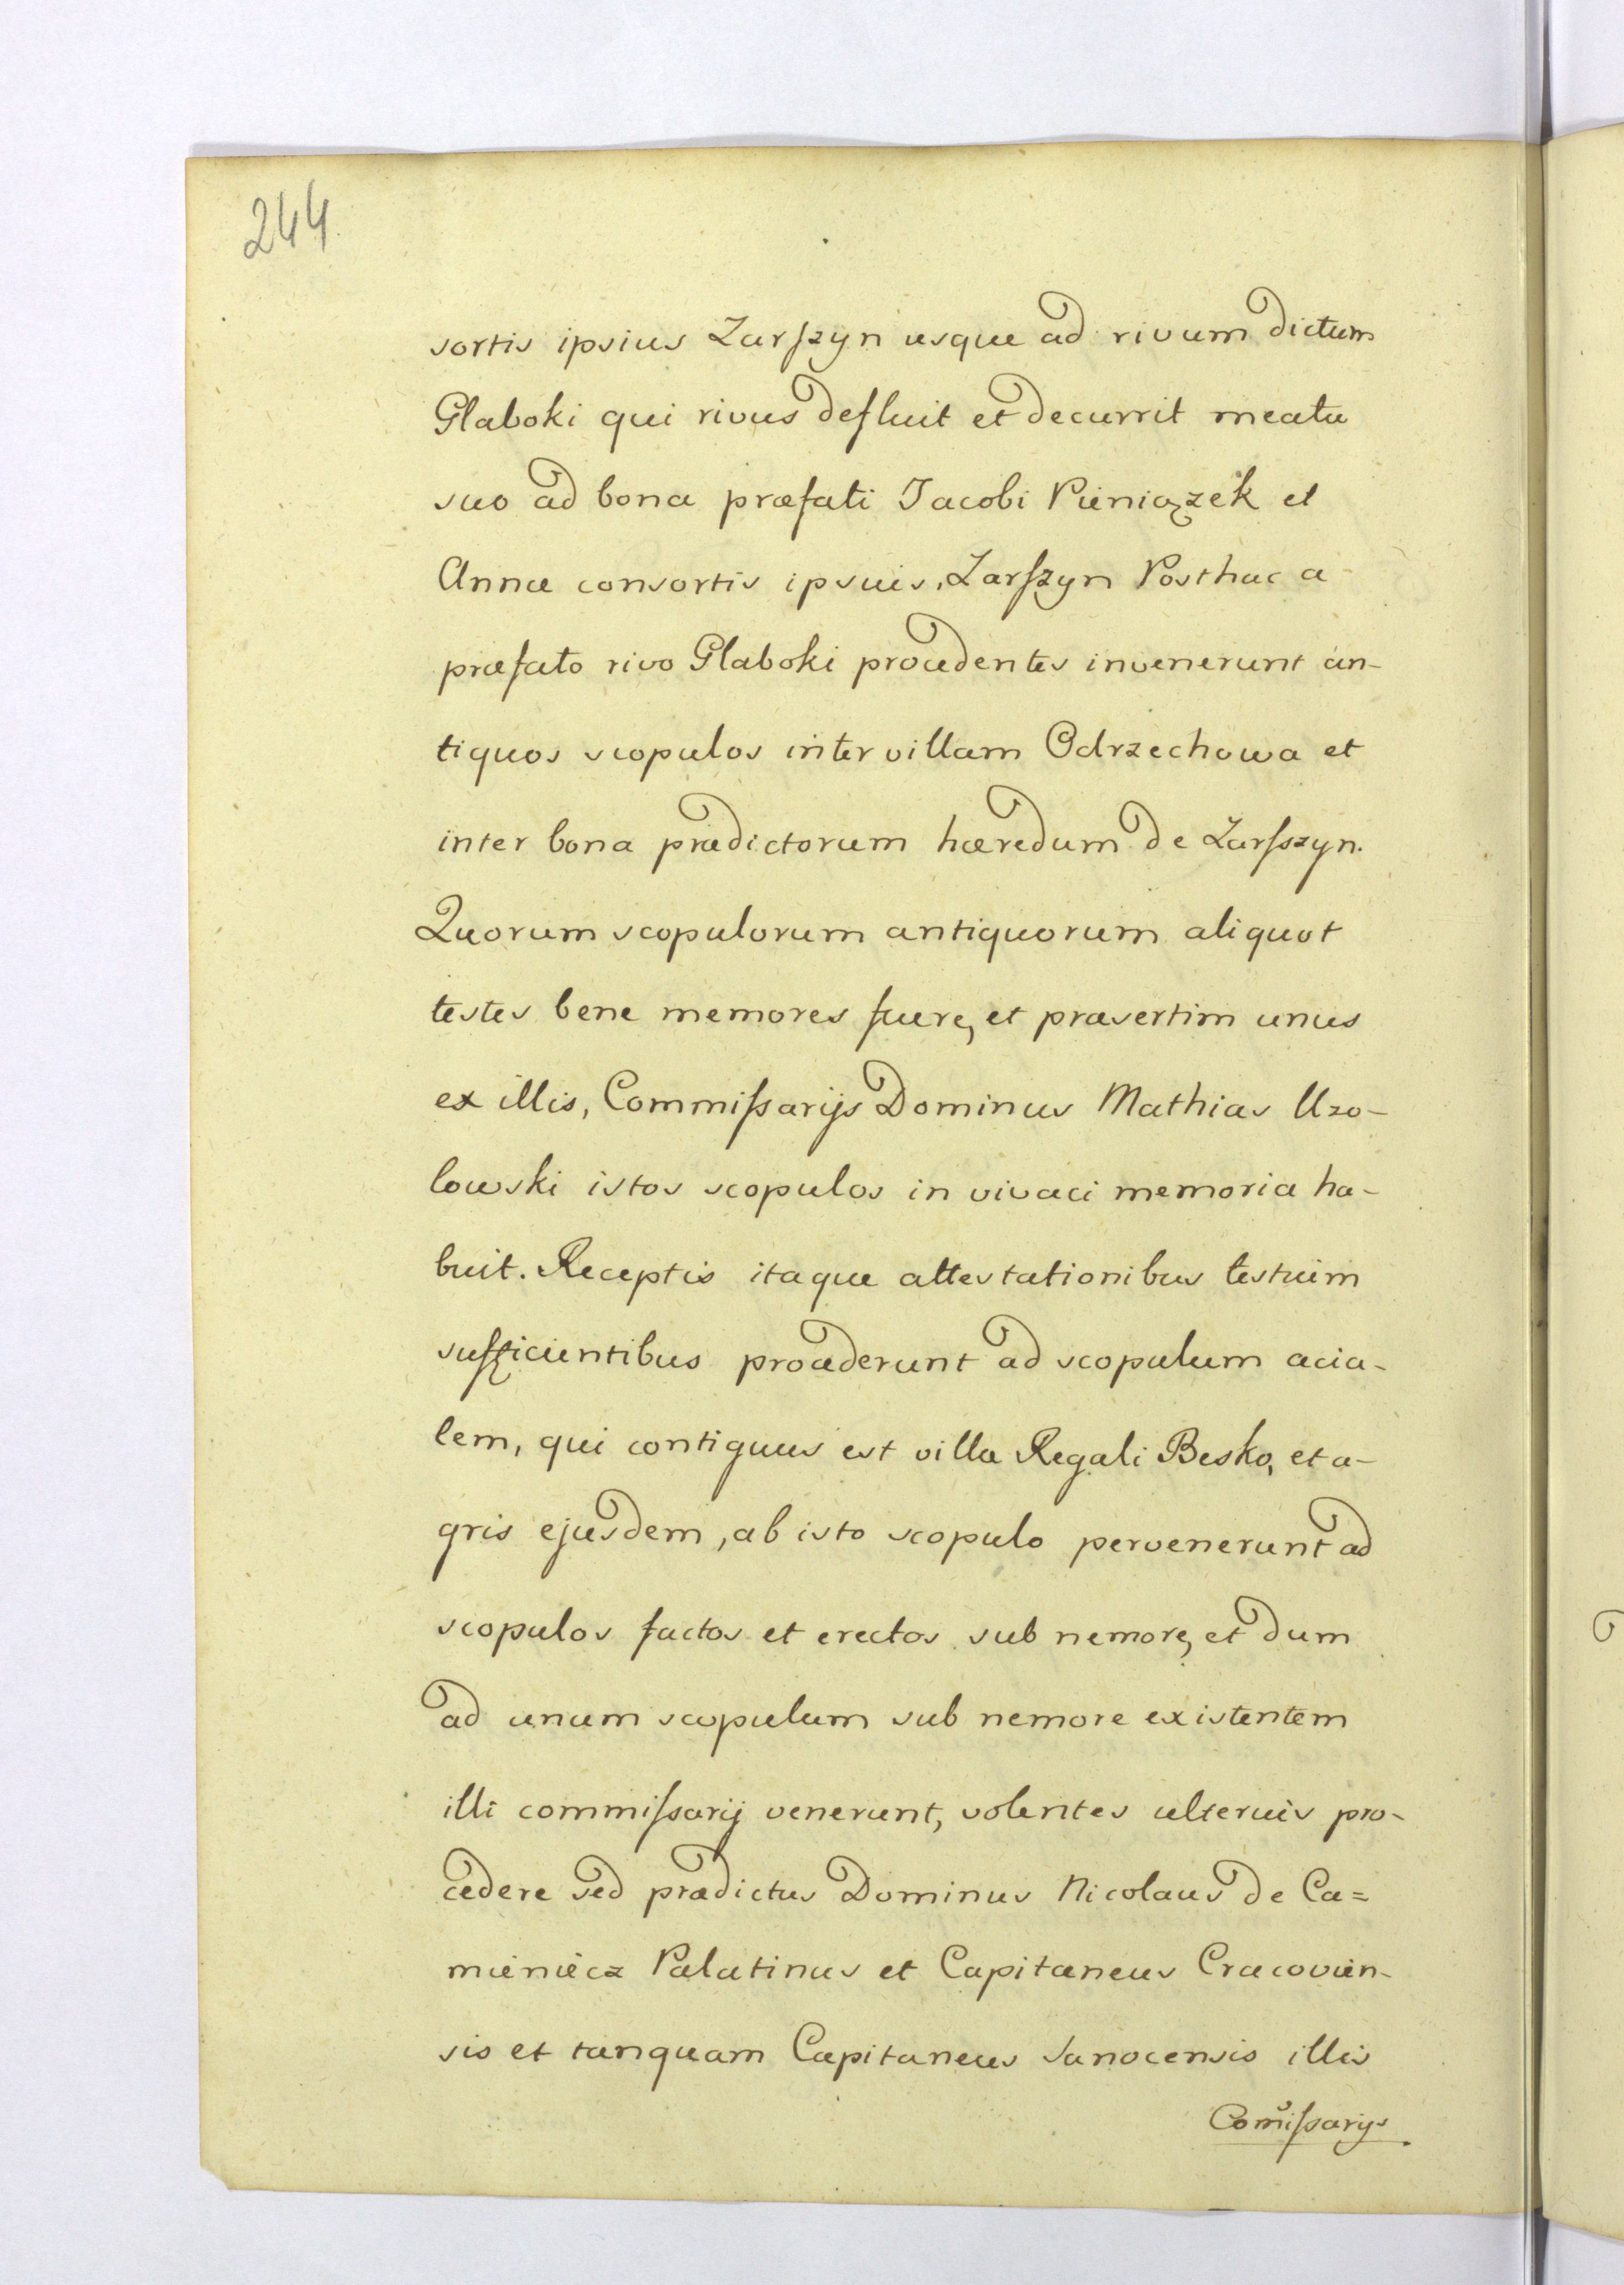 244
sortis ipsius Zarſzyn usque ad rivum dictum
Glaboki qui rivus defluit et decurrit meatu
suo ad bona præfati Jacobi Pieniązek et
Annæ consortis ipsuis, Zarſzyn Posthac a
præfato rivo Glaboki procedentes invenerunt an-
tiquos scopulos inter villam Odrzechowa et
inter bona prædictorum hæredum de Zarſszyn.
Quorum scopulorum antiquorum aliquot
testes bene memores fuere, et præsertim unus
ex illis, Commiſsarijs Dominus Mathias Uzo-
lowski istos scopulos in vivaci memoria ha-
buit. Receptis itaque attestationibus testium
sufficientibus procederunt ad scopulum acia-
lem, qui contiguus est villæ Regali Besko, et a-
gris ejusdem, ab isto scopulo pervenerunt ad
scopulos factos et erectos sub nemore, et dum
ad unum scopulum sub nemore existentem
illi commiſsarij venerunt, volentes ulterius pro-
cedere sed prædictus Dominus Nicolaus de Ca=
mieniecz Palatinus et Capitaneus Cracovien-
sis et tanquam Capitaneus Sanocensis illis
Com̃iſsarijs